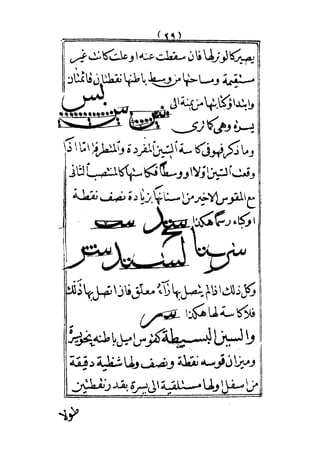 (٢٩)
يصير كالوترلها فان سقطت عنه اوعلت كانت غير
مستقيمة ومساحتها من وسط باطنها نقطتان فائمتان
وابتداؤ كتابتها من يمنة الى
يسرة وهى كما ترى
بس
وما ذكر فهو فى كاسة السين المفردة والمتطرفة اما اذا
وقعت السين اولا او وسطا فكاستها كالمنتصب الثانى
مع المقوس الاخير من اسنانها بزيادة نصف نقطة
اوكباء رسما هكذا
ستد ست
سرسا لسند ستر
وكل ذلك اذا لم يتصل بها زآء معلق فان اتصل بها ذلك
فلا كاسة لها هكذا سر
والسين البسيطة كقوس اميل باطنه نحو يسرة
وميزان قوسه نقطة ونصف ولها شظية دقيقة
من اسفل اولها مستلقية الى يسرة بقدر نقطتين
طولا